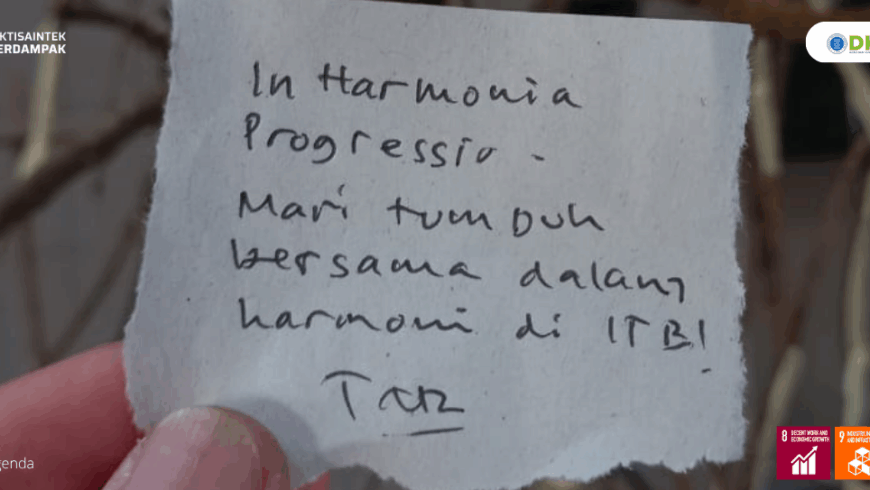 KTISAINTEK
ERDAMPAK
In Harmonia
Progressio -
Mari tumbuh
bersama dalam
harmoni di ITB!
genda
8 DECENT WORK AND
ECONOMIC GROWTH
9